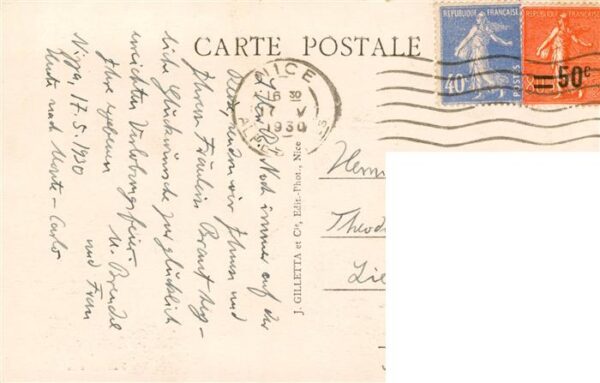 CARTE POSTALE
REPUBLIQUE FRANÇAISE
40c
POSTES
REPUBLIQUE FRANÇAISE
50c
NICE
16 30
V
1930
Noch immer auf der
Reise, senden wir Ihnen und
Ihrem Fräulein Braut herz-
liche Glückwünsche zur glücklich
erreichten Verlobungsfeier
Ihre ergebenen
Brendel
und Frau
Nizza, 17.5.1930
Heute nach Monte-Carlo
J. GILLETTA et Cie, Edit.-Phot., Nice
Herrn
Theod
Lie